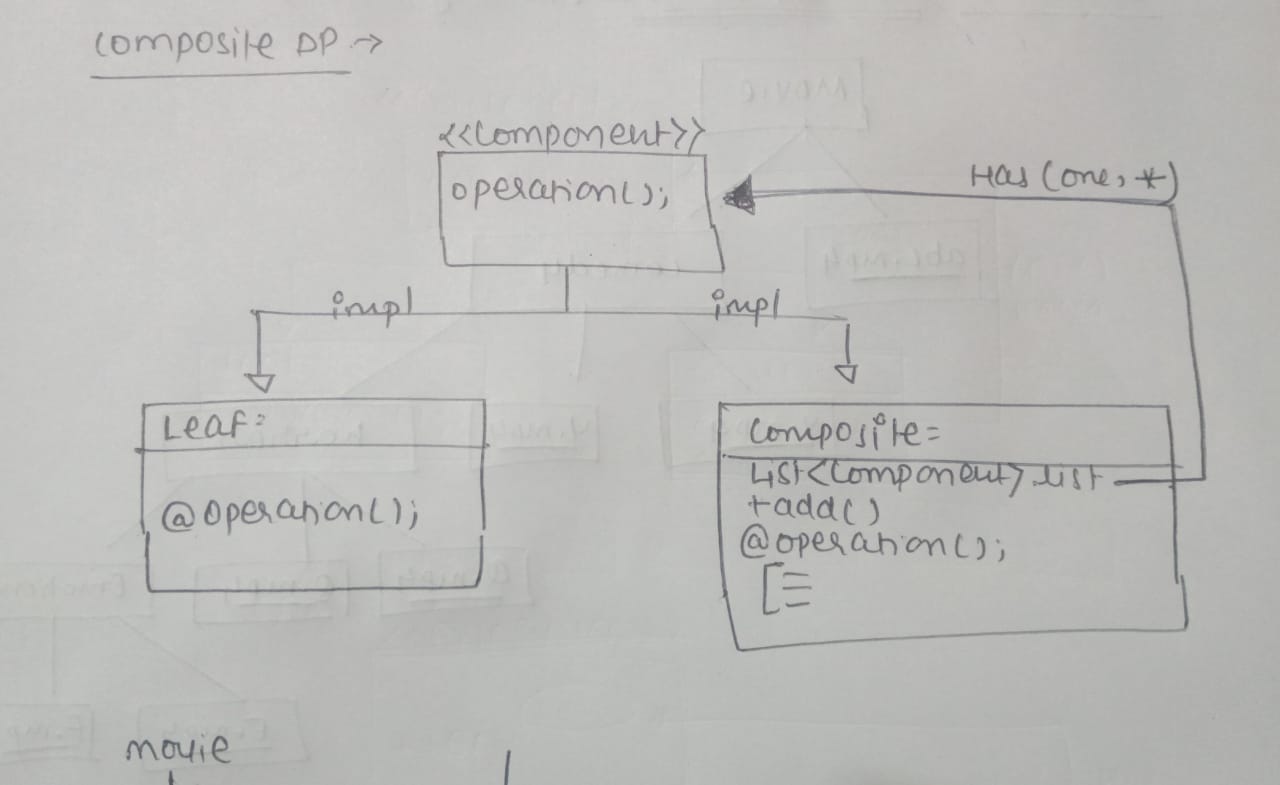 composite DP →
<<Component>>
operation();
Has (one, *)
impl
impl
Leaf:
@operation();
Composite=
List<Component> list
+add()
@operation();
movie